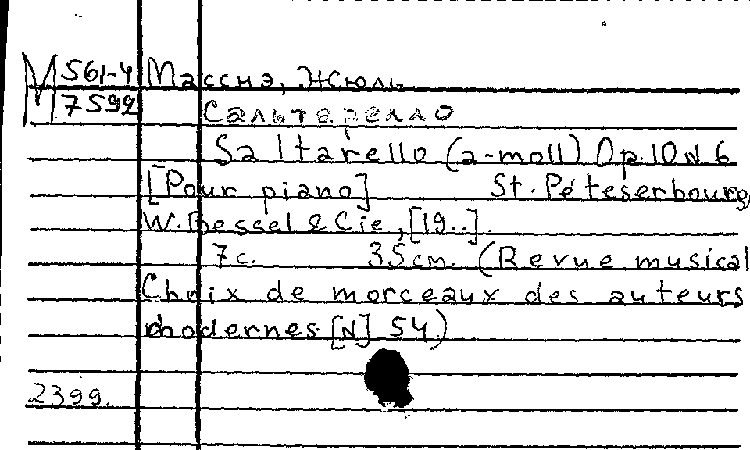 М 561-4 Масснэ, Жюль
7592 Сальтерелло
Saltarello (a-moll) Op.10 N 6
[Pour piano] St. Péteserbourg,
W. Bessel & Cie, [19..].
7 с. 35 см. (Revue musical
Choix de morceaux des auteurs
modernes [N] 54)
2399.